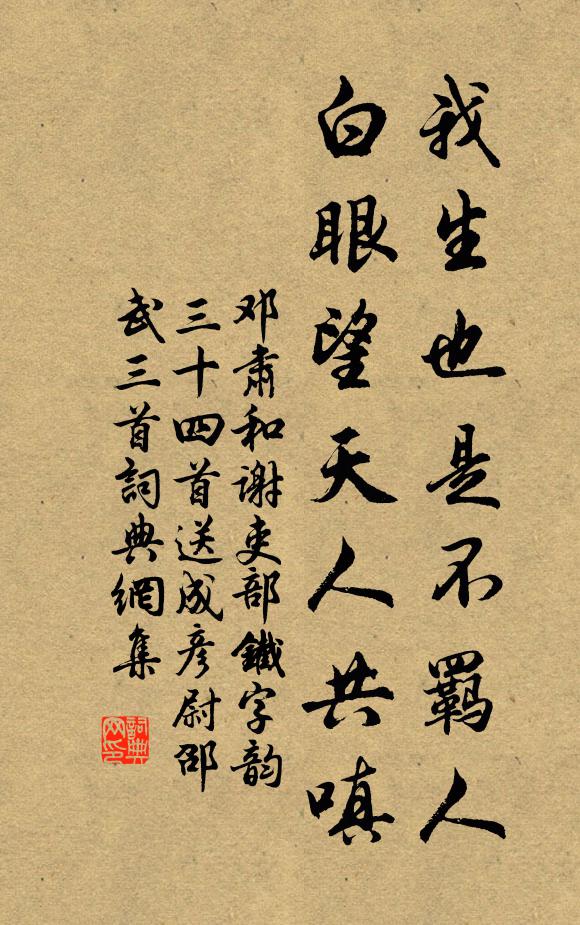 我生也是不羈人
白眼望天人共嗔
邓肅和謝吏部鐵字韵
三十四首送成彦尉邵
武三首詞典網集
詞典网印